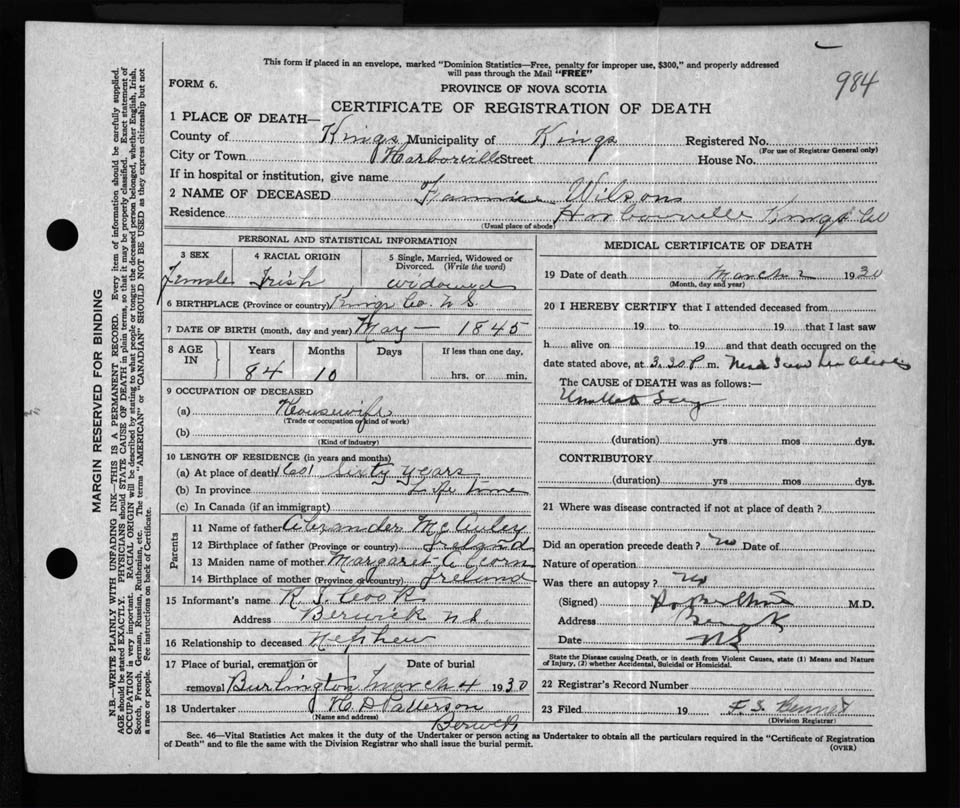 This form if placed in an envelope, marked "Dominion Statistics—Free, penalty for improper use, $300," and properly addressed
will pass through the Mail "FREE"
984
FORM 6.
PROVINCE OF NOVA SCOTIA
CERTIFICATE OF REGISTRATION OF DEATH
1 PLACE OF DEATH—
County of Kings Municipality of Kings Registered No.
(For use of Registrar General only)
City or Town Harborville Street House No.
If in hospital or institution, give name
2 NAME OF DECEASED Fannie Wilson
Residence Harbourville Kings Co
(Usual place of abode)
PERSONAL AND STATISTICAL INFORMATION
3 SEX 4 RACIAL ORIGIN 5 Single, Married, Widowed or
Divorced. (Write the word)
Female Irish widowed
6 BIRTHPLACE (Province or country) Kings Co. N.S.
7 DATE OF BIRTH (month, day and year) May — 1845
8 AGE IN Years Months Days If less than one day,
84 10 hrs. or min.
9 OCCUPATION OF DECEASED
(a) Housewife
(Trade or occupation or kind of work)
(b)
(Kind of industry)
10 LENGTH OF RESIDENCE (in years and months)
(a) At place of death (60) sixty years
(b) In province Life time
(c) In Canada (if an immigrant)
Parents
11 Name of father Alexander McCauley
12 Birthplace of father (Province or country) Ireland
13 Maiden name of mother Margaret
14 Birthplace of mother (Province or country) Ireland
15 Informant's name R. S. Cook
Address Berwick N.S.
16 Relationship to deceased Nephew
17 Place of burial, cremation or Date of burial
removal Burlington March 4 1930
18 Undertaker H. D Patterson
(Name and address) Berwick
MEDICAL CERTIFICATE OF DEATH
19 Date of death March 2 1930
(Month, day and year)
20 I HEREBY CERTIFY that I attended deceased from
19 to 19 that I last saw
h alive on 19 and that death occurred on the
date stated above, at 3.30 P. m.
The CAUSE OF DEATH was as follows:—
(duration) yrs mos dys.
CONTRIBUTORY
(duration) yrs mos dys.
21 Where was disease contracted if not at place of death?
Did an operation precede death? no Date of
Nature of operation
Was there an autopsy? no
(Signed) M.D.
Address Berwick
Date NS
State the Disease causing Death, or in death from Violent Causes, state (1) Means and Nature
of Injury, (2) whether Accidental, Suicidal or Homicidal.
22 Registrar's Record Number
23 Filed 19 F. S. Bennet
(Division Registrar)
Sec. 46—Vital Statistics Act makes it the duty of the Undertaker or person acting as Undertaker to obtain all the particulars required in the "Certificate of Registration
of Death" and to file the same with the Division Registrar who shall issue the burial permit. (OVER)
MARGIN RESERVED FOR BINDING
N.B.—WRITE PLAINLY WITH UNFADING INK—THIS IS A PERMANENT RECORD. Every item of information should be carefully supplied.
AGE should be stated EXACTLY. PHYSICIANS should STATE CAUSE OF DEATH in plain terms, so that it may be properly classified. Exact statement of
OCCUPATION is very important. RACIAL ORIGIN will be described by stating to what people or tongue the deceased person belonged, whether English, Irish,
Scotch, French, German, Russian, Ruthenian, etc. The terms "AMERICAN" or "CANADIAN" SHOULD NOT BE USED as they express citizenship but not
a race or people. Fee instructions on back of Certificate.